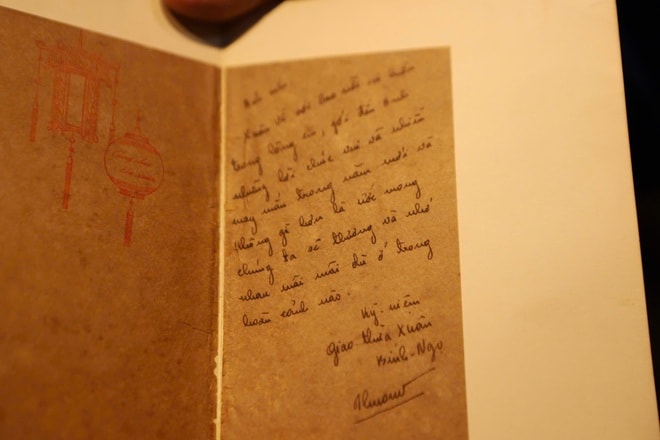 Xuân về với bao nỗi
trong lòng em, gởi đến anh
những lời chúc vui và nhiều
may mắn trong năm mới và
không gì hơn là ước mong
chúng ta sẽ thương và nhớ
nhau mãi mãi dù ở trong
hoàn cảnh nào.
Kỷ-niệm
giao thừa Xuân
Bính-Ngọ